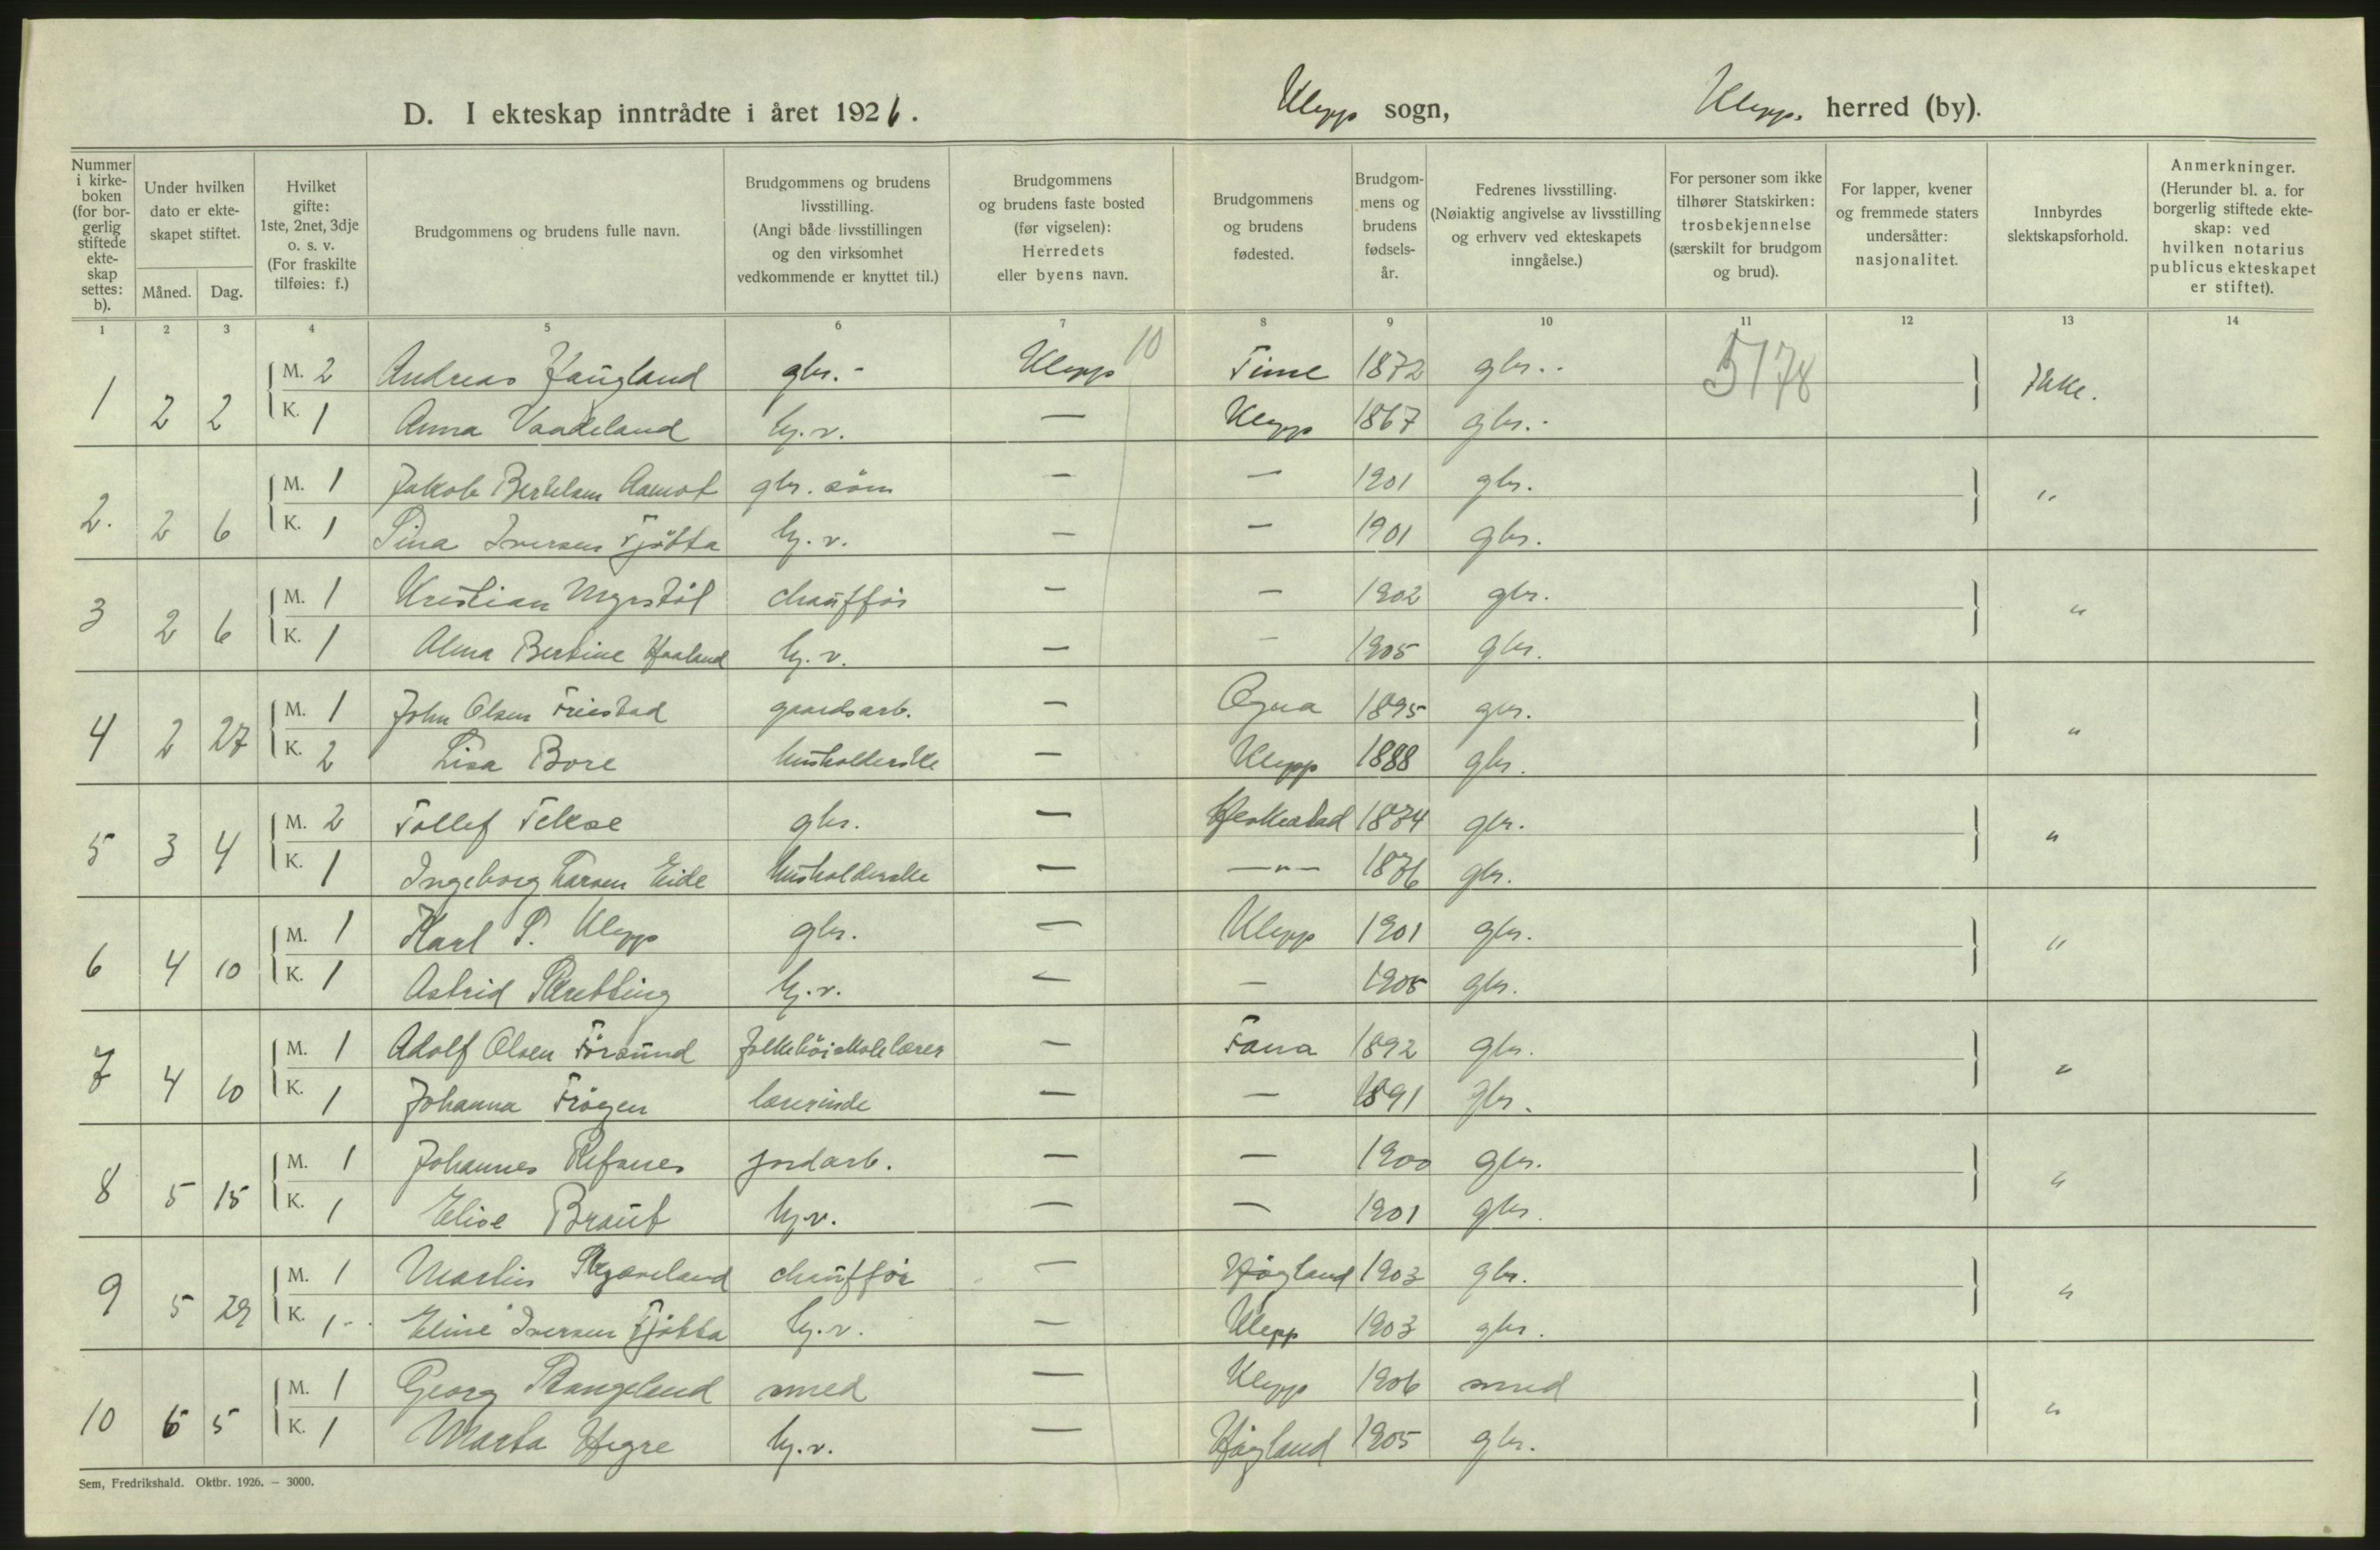 D. I ekteskap inntrådte i året 1926. Klepp sogn, Klepp. herred (by).
Nummer i kirke-boken (for bor-gerlig stiftede ekte-skap settes: b).
Under hvilken dato er ekte-skapet stiftet.
Måned. Dag.
Hvilket gifte: 1ste, 2net, 3dje o. s. v. (For fraskilte tilføies: f.)
Brudgommens og brudens fulle navn.
Brudgommens og brudens livsstilling. (Angi både livsstillingen og den virksomhet vedkommende er knyttet til.)
Brudgommens og brudens faste bosted (før vigselen): Herredets eller byens navn.
Brudgommens og brudens fødested.
Brudgom-mens og brudens fødsels-år.
Fedrenes livsstilling. (Nøiaktig angivelse av livsstilling og erhverv ved ekteskapets inngåelse.)
For personer som ikke tilhører Statskirken: trosbekjennelse (særskilt for brudgom og brud).
For lapper, kvener og fremmede staters undersåtter: nasjonalitet.
Innbyrdes slektskapsforhold.
Anmerkninger. (Herunder bl. a. for borgerlig stiftede ekte-skap: ved hvilken notarius publicus ekteskapet er stiftet).
1 2 3 4 5 6 7 8 9 10 11 12 13 14
1 2 2 M. 2 Andreas Haugland gbr. - Klepp 10 Time 1872 gbr. - 5178 Ikke.
K. 1 Anna Vaadeland hj. v. — Klepp 1867 gbr. -
2. 2 6 M. 1 Jakob Bertelsen Aamot gbr. søn — — 1901 gbr. "
K. 1 Sina Iversen Tjøtta hj. v. — — 1901 gbr.
3 2 6 M. 1 Kristian Myrstøl chauffør — — 1902 gbr. "
K. 1 Alma Bertine Haaland hj. v. — — 1905 gbr.
4 2 27 M. 1 John Olsen Friestad gaardsarb. — Ogna 1895 gbr. "
K. 2 Lisa Bore husholderske — Klepp 1888 gbr.
5 3 4 M. 2 Tollef Tekse gbr. — Heskestad 1874 gbr. "
K. 1 Ingeborg Larsen Eide husholderske — —"— 1876 gbr.
6 4 10 M. 1 Karl P. Klepp gbr. — Klepp 1901 gbr. "
K. 1 Astrid Skretting hj. v. — — 1905 gbr.
7 4 10 M. 1 Adolf Olsen Førsund folkehøiskolelærer — Fana 1892 gbr. "
K. 1 Johanna Frøgen lærerinde — — 1891 gbr.
8 5 15 M. 1 Johannes Refsnes jordarb. — — 1900 gbr. "
K. 1 Elise Braut hj. v. — — 1901 gbr.
9 5 29 M. 1 Martin Skjæveland chauffør — Høgland 1903 gbr. "
K. 1 Eline Iversen Tjøtta hj. v. — Klepp 1903 gbr.
10 6 5 M. 1 Georg Stangeland smed — Klepp 1906 smed "
K. 1 Marta Hegre hj. v. — Høgland 1905 gbr.
Sem, Fredrikshald. Oktbr. 1926. — 3000.